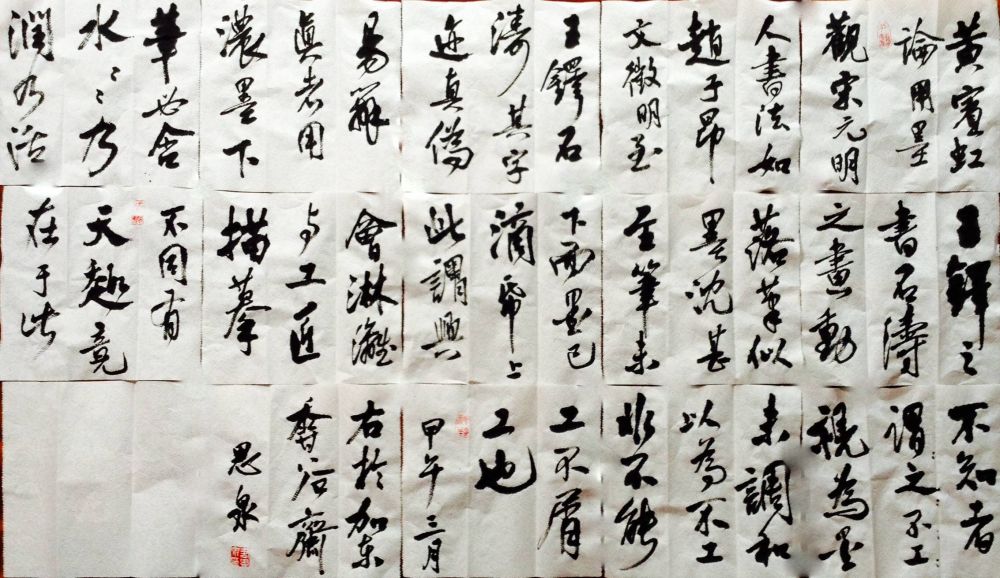 黃賓虹
論用墨
觀宋元明
人書法如
趙子昂
文徵明至
王鐸石
濤其字
迹真偽
易辨
真者用
濃墨下
筆必含
水〻〻乃
潤乃活
王鐸之
書石濤
之畫動
落筆似
墨沈甚
至筆未
下而墨已
滴帋上
此謂興
會淋漓
与工匠
描摹
不同有
天趣竟
在于此
不知者
謂之不工
視為墨
未調和
以為不工
非不能
工不屑
工也
甲午三月
右於加東
齋
思泉